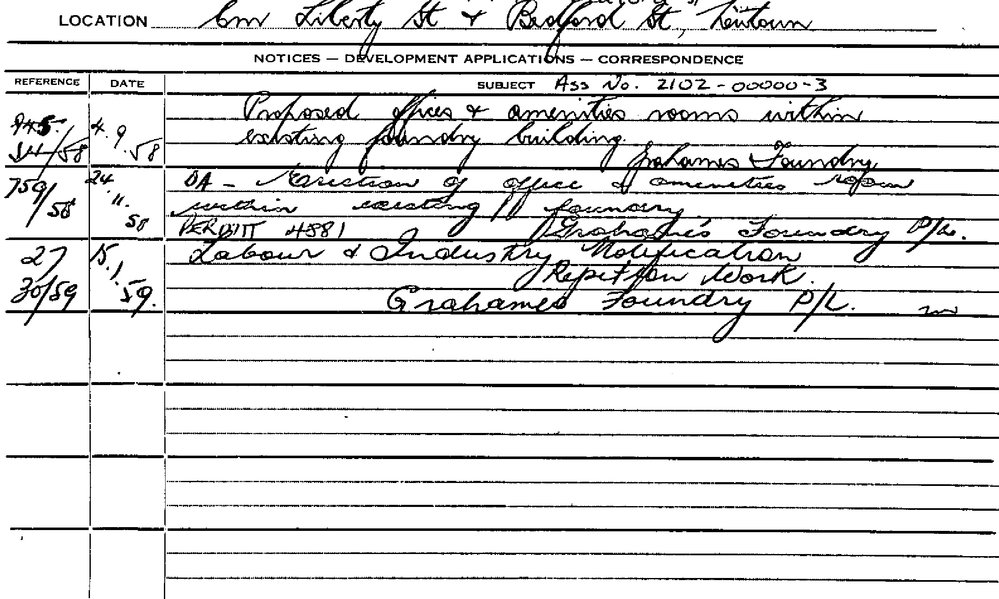 LOCATION Cnr Liberty St & Bedford St, Newtown
NOTICES — DEVELOPMENT APPLICATIONS — CORRESPONDENCE
REFERENCE DATE SUBJECT Ass No. 2102-00000-3
4.9.58 Proposed offices & amenities rooms within
existing foundry building
Grahames Foundry
759/58 24.11.58 DA - Erection of office & amenities room
within existing foundry.
PERMIT 4881 Grahame's Foundry P/L.
27 15.1.59. Labour & Industry Notification
30/59 Repition Work.
Grahames Foundry P/L.